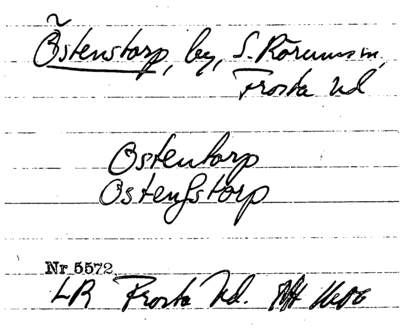 Östenstorp, by, S. Rörums sn,
Frosta hd
Ostentorp
Ostenstorp
Nr 5572
LR Frosta hd.